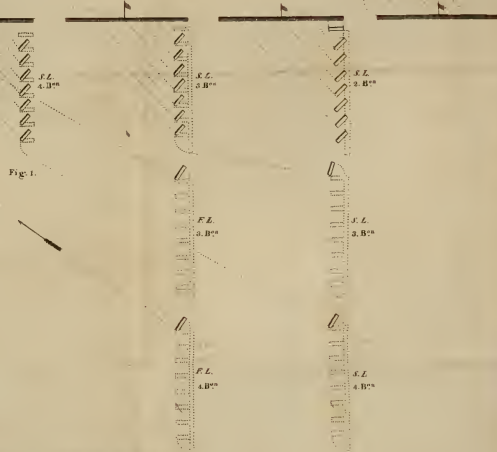 S. L.
4. Bon
S. L.
3. Bon
S. L.
2. Bon
Fig. 1.
F. L.
3. Bon
S. L.
3. Bon
F. L.
4. Bon
S. L.
4. Bon